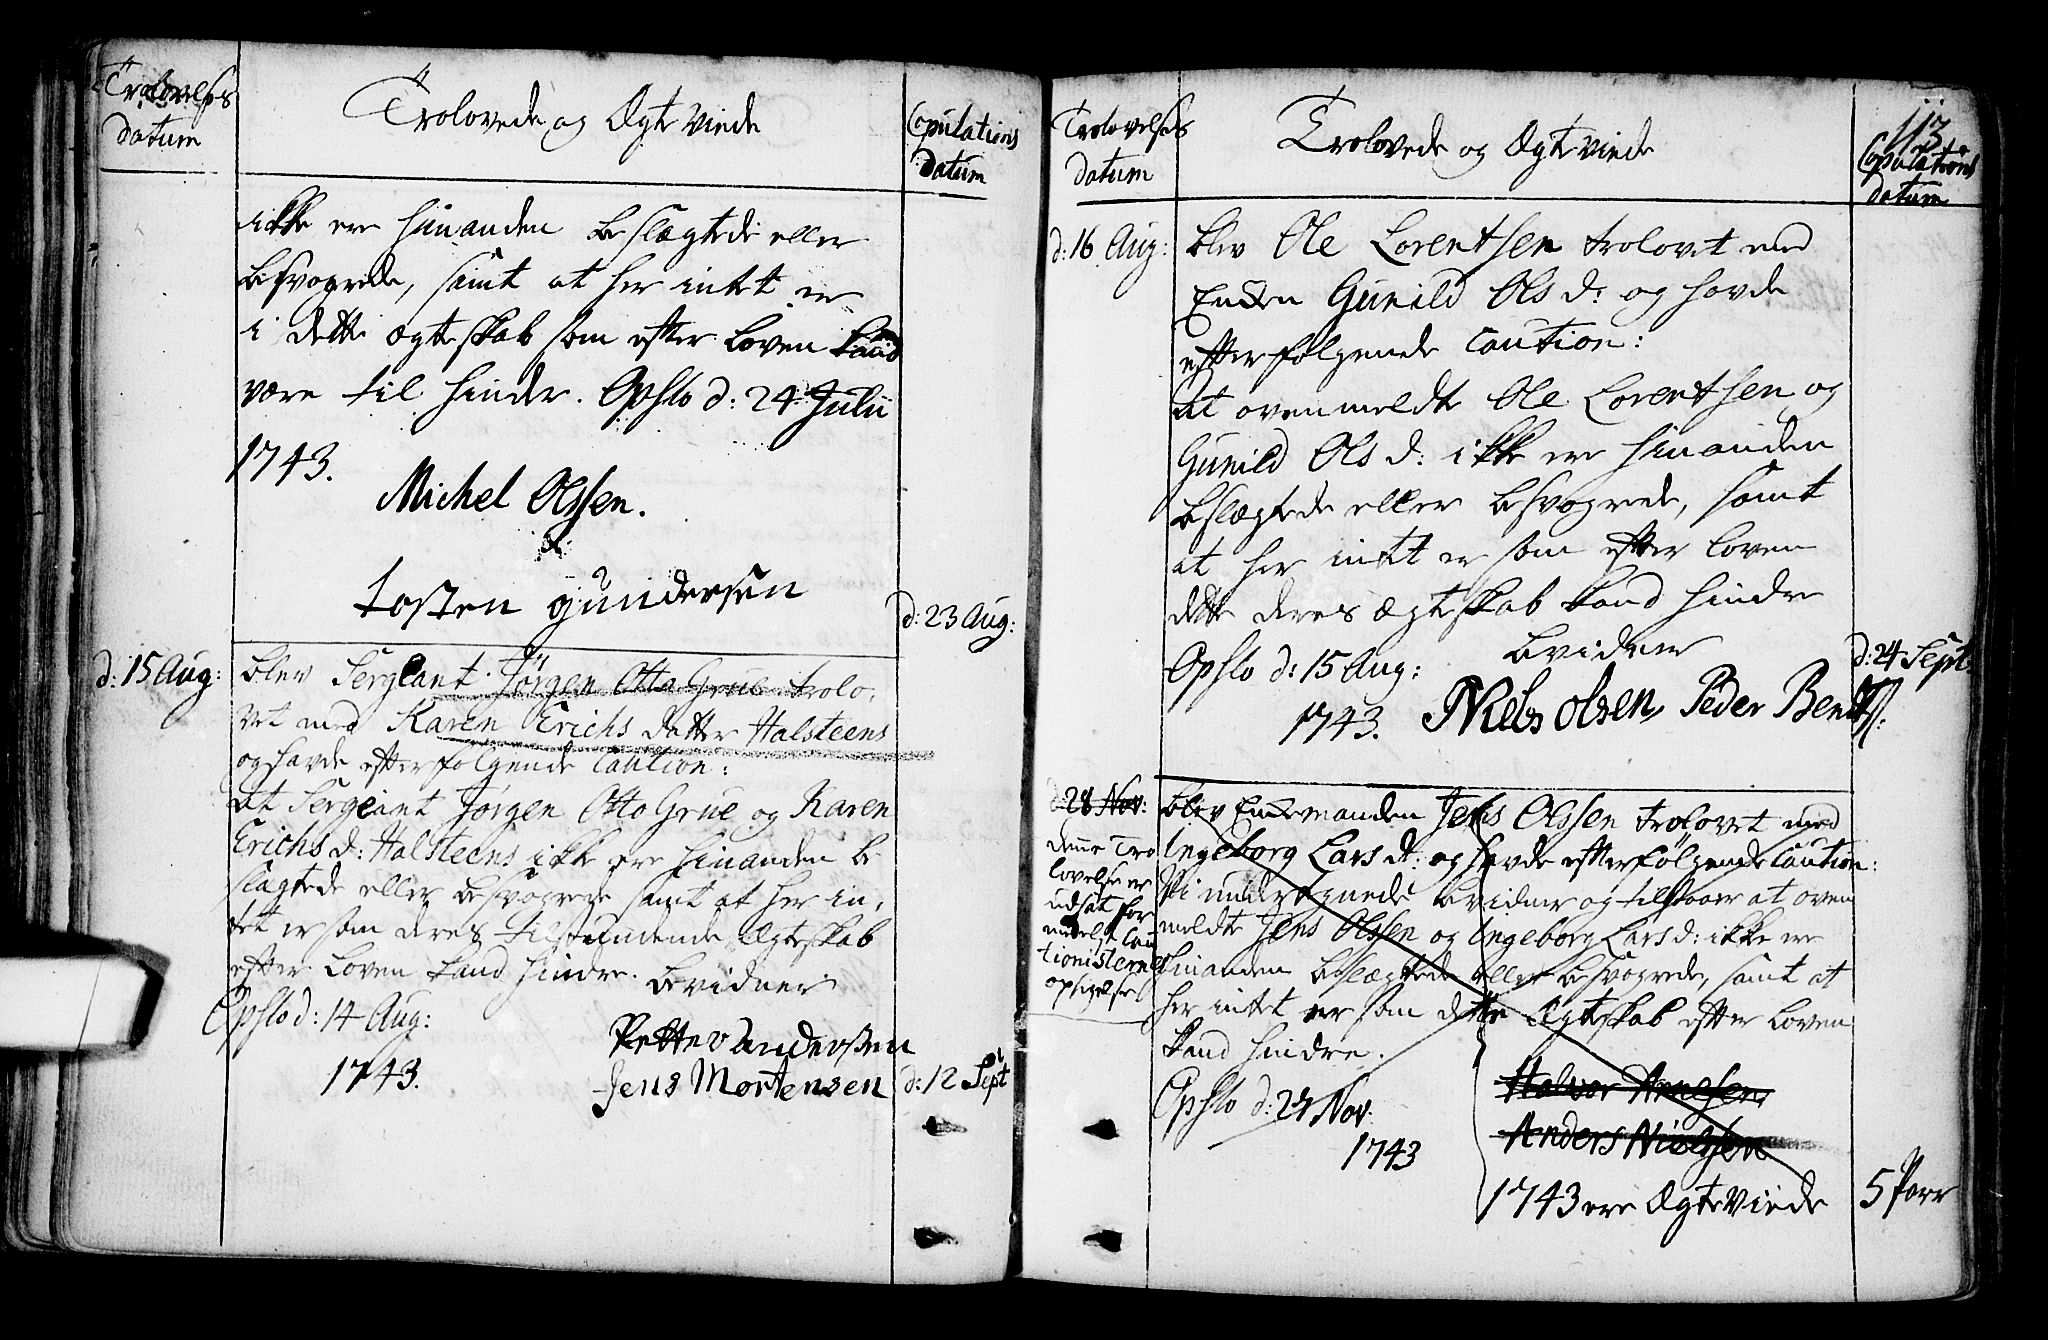 Trolovelses
datum
Trolovede og Ægte Viede
Copulations
datum
ikke ere hinanden beslægtede eller
besvogrede, samt at her intet er
i dette ægteskab som efter Loven kand
være til hinder. Opslo d: 24 Julii
1743.
Michel Olssen.
tosten gundersen
d: 23 Aug:
d: 15 Aug:
blev Sergeant Jørgen Otto Grue trolo,
vet med Karen Erichs datter Halsteens
og havde efterfølgende Caution:
At Sergeiant Jørgen Otto Grue og Karen
Erichs d: Halsteens ikke ere hinanden be
slægtede eller besvogrede samt at her in,
tet er som deres tilstundende Ægteskab
efter Loven kand hindre. bevidner
Opslo d: 14 Aug:
1743.
Petter Anderssen
Jens Mortensen
d: 12 Sept
113
Trolovelses
datum
Trolovede og Ægte viede
Copulations
datum
d: 16 Aug:
blev Ole Lorentsen trolovet med
Enken Gunild Ols d: og havde
efterfølgende Caution:
At ovenmeldte Ole Lorentsen og
Gunild Ols d: ikke ere hinanden
beslægtede eller besvogrede, samt
at her intet er som efter Loven
dette deres ægteskab kand hindre
bevidner
Opslo d: 15 Aug:
1743.
Niels olsen, Peder Bents:
d: 24 Sept:
d: 28 Nov:
denne Tro
lovelse er
udsat for
medelst Cau
tionisternes
opsigelse
blev Enkemanden Jens Olssen trolovet med
Ingeborg Lars d: og havde efterfølgende Caution:
Vi underegnede bevidner og tilstaaer at oven
meldte Jens Olssen og Ingeborg Lars d: ikke ere
hinanden beslægtede eller besvogrede, samt at
her intet er som dette Ægteskab efter Loven
kand hindre.
Opslo d: 27 Nov.
1743
Halvor Arnesen
Anders Nielsen
1743 ere Ægteviede
5 Parr